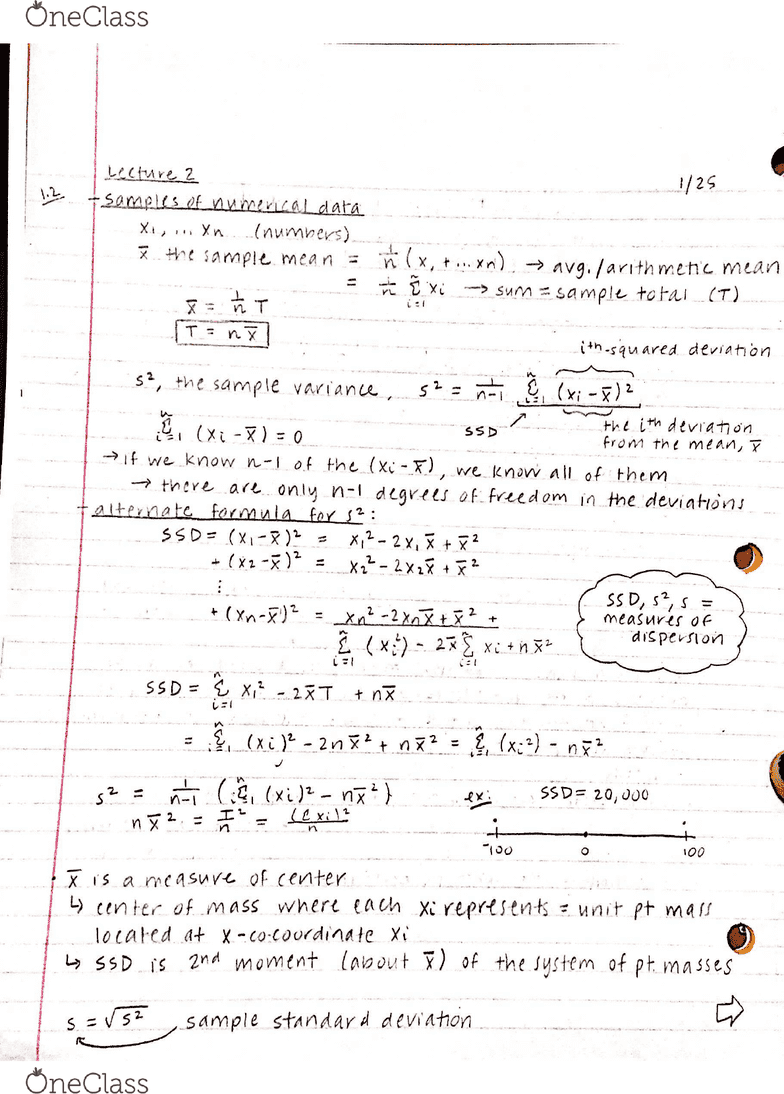 OneClass
Lecture 2
1/25
1.2
- samples of numerical data
x₁, ... xn (numbers)
x̄ the sample mean = 1/n (x, + ... xn) → avg./arithmetic mean
= 1/n Σⁿᵢ₌₁ xi → sum = sample total (T)
x̄ = 1/n T
T = n x̄
ith-squared deviation
s², the sample variance, s² = 1/n-1 Σⁿᵢ₌₁ (xi - x̄)²
SSD
the ith deviation
from the mean, x̄
Σⁿᵢ₌₁ (xi - x̄) = 0
→ if we know n-1 of the (xi - x̄), we know all of them
→ there are only n-1 degrees of freedom in the deviations
- alternate formula for s²:
SSD = (x₁ - x̄)² = x₁² - 2x₁ x̄ + x̄²
+ (x₂ - x̄)² = x₂² - 2x₂x̄ + x̄²
⋮
+ (xn - x̄)² = xn² - 2xnx̄ + x̄² +
Σⁿᵢ₌₁ (xi²) - 2x̄ Σⁿᵢ₌₁ xi + n x̄²
SSD, s², s =
measures of
dispersion
SSD = Σⁿᵢ₌₁ xi² - 2x̄T + nx̄
= Σⁿᵢ₌₁ (xi)² - 2nx̄² + nx̄² = Σⁿᵢ₌₁ (xi²) - nx̄²
s² = 1/n-1 (Σⁿᵢ₌₁ (xi)² - nx̄²)
n x̄² = T²/n = (Σxi)²/n
ex: SSD = 20,000
-100 0 100
· x̄ is a measure of center
↳ center of mass where each xi represents = unit pt mass
located at x-co-coordinate xi
↳ SSD is 2nd moment (about x̄) of the system of pt. masses
s = √s² sample standard deviation
OneClass